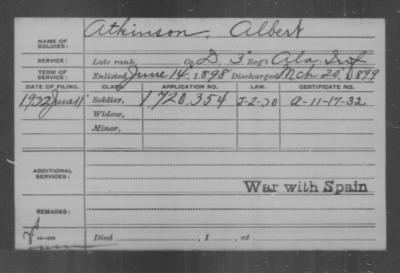 NAME OF SOLDIER: Atkinson, Albert
SERVICE: Late rank, Co D, 3" Reg't Ala. Inf
TERM OF SERVICE: Enlisted June 14, 1898 Discharged Mch 20, 1899
DATE OF FILING. CLASS. APPLICATION NO. LAW. CERTIFICATE NO.
1932 June 11 Soldier, 1,720,354 J-2-30 A-11-17-32
Widow,
Minor,
ADDITIONAL SERVICES:
War with Spain
REMARKS:
Died , 1 , at